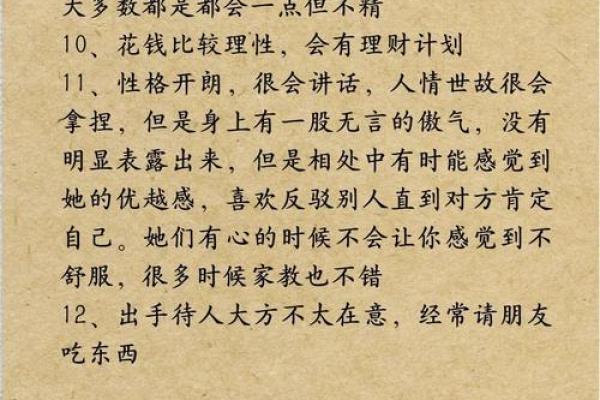 大多数都是都会一点但不精
10、花钱比较理性，会有理财计划
11、性格开朗，很会讲话，人情世故很会
拿捏，但是身上有一股无言的傲气，没有
明显表露出来，但是相处中有时能感觉到
她的优越感，喜欢反驳别人直到对方肯定
自己。她们有心的时候不会让你感觉到不
舒服，很多时候家教也不错
12、出手待人大方不太在意，经常请朋友
吃东西